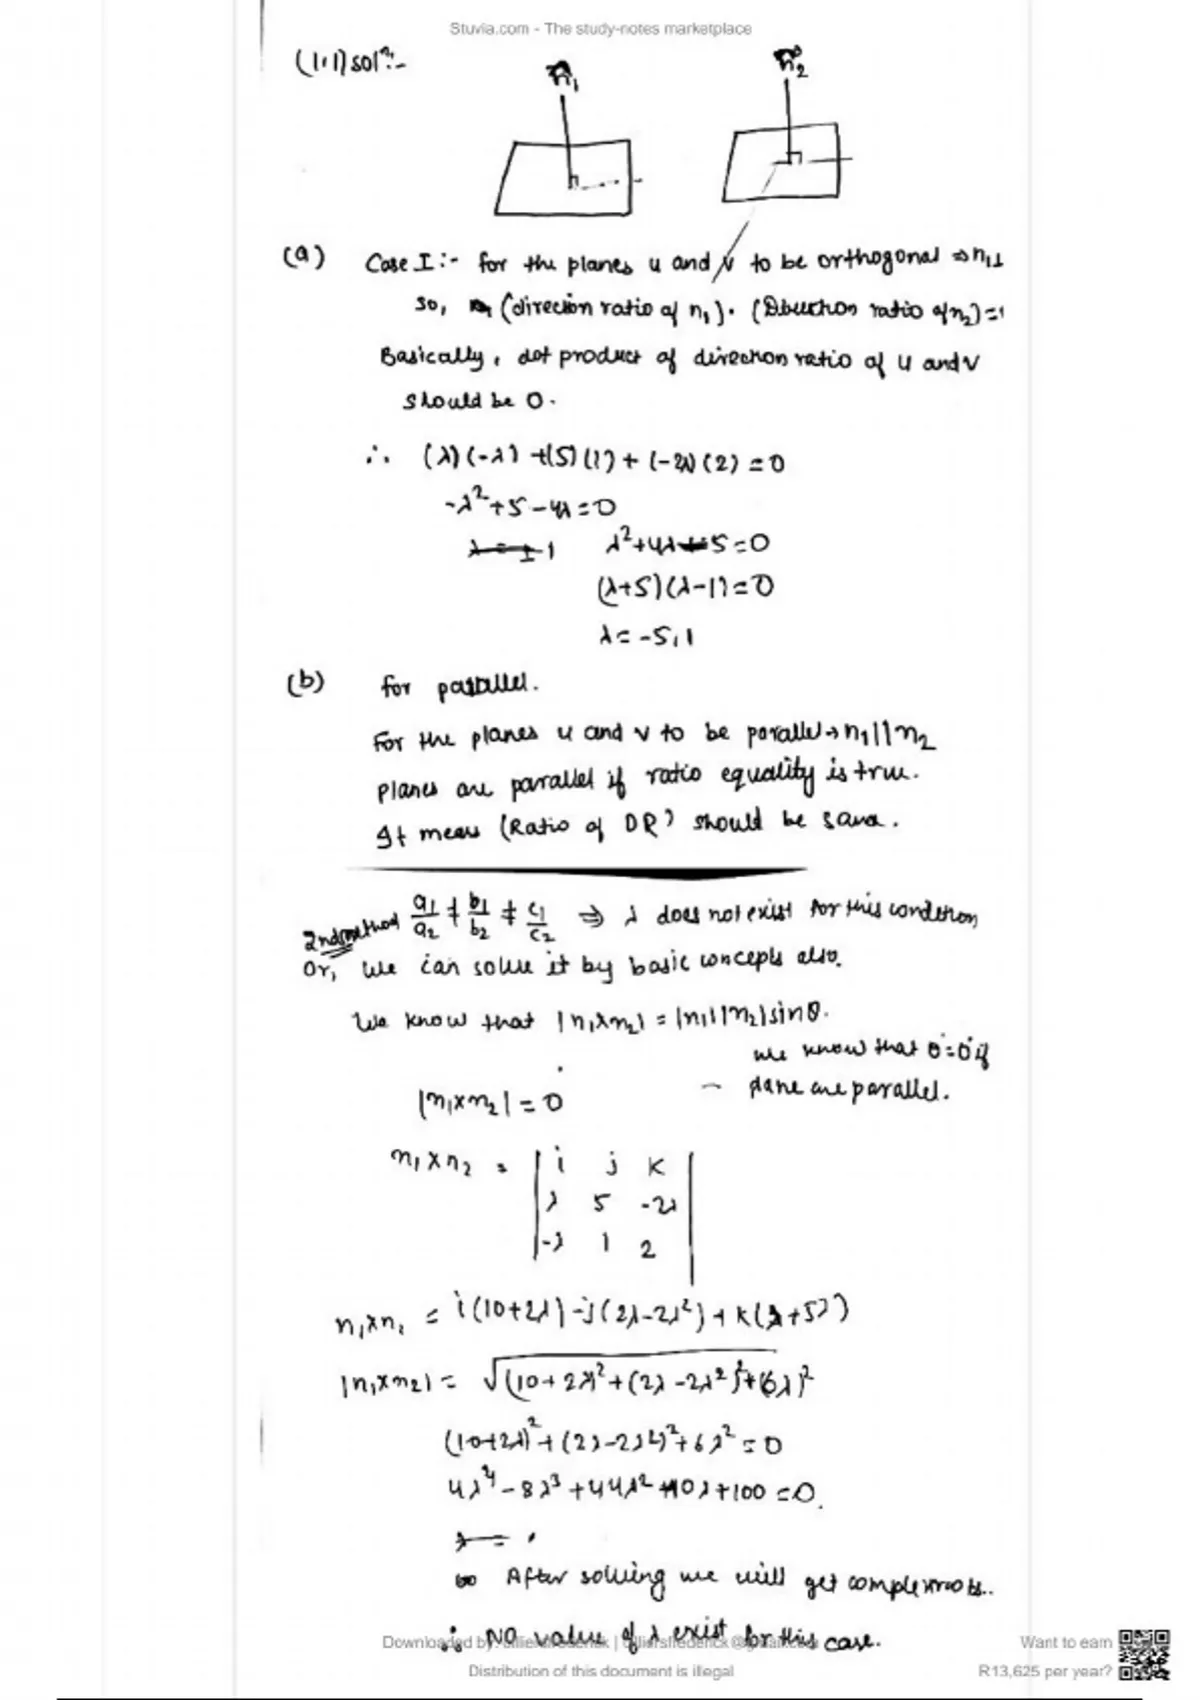 Stuvia.com - The study-notes marketplace
(1.1) solⁿ:-
n₁ n₂
(a) Case I :- for the planes u and v to be orthogonal ⇒ n₁⊥
so, (direction ratio of n₁). (Direction ratio of n₂) =
Basically, dot product of direction ratio of u and v
should be 0.
∴ (λ)(-λ) +(5)(1) + (-2λ)(2) = 0
-λ²+5-4λ=0
λ²+4λ-5=0
(λ+5)(λ-1)=0
λ= -5,1
(b) for parallel.
For the planes u and v to be parallel→ n₁||n₂
planes are parallel if ratio equality is true.
It means (Ratio of DR) should be same.
2nd method a₁/a₂ ≠ b₁/b₂ ≠ c₁/c₂ ⇒ λ does not exist for this condition
Or, We can solve it by basic concepts also.
We know that |n₁xn₂| = |n₁||n₂|sinθ.
we know that θ=0° if
plane are parallel.
|n₁xn₂| = 0
n₁xn₂ = | i j k
λ 5 -2λ
-λ 1 2 |
n₁xn₂ = i(10+2λ)-j(2λ-2λ²)+k(λ+5λ)
|n₁xn₂| = √(10+2λ)²+(2λ-2λ²)²+(6λ)²
(10+2λ)²+(2λ-2λ²)²+6λ²=0
4λ⁴-8λ³+44λ²+40λ+100=0.
After solving we will get complex roots..
∴ No value of λ exist for this case.
Downloaded by:
Want to earn
Distribution of this document is illegal
R13,625 per year?